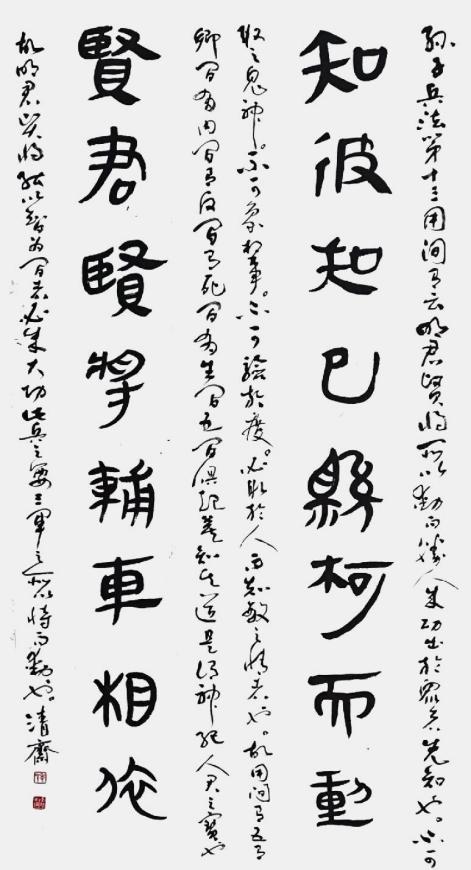 孫子兵法第十三用间有云明君賢將所以動而勝人成功出於眾者先知也。不可
知彼知己縣柯而動
取之鬼神。不可象於事。不可驗於度。必取於人而知敵之情者也。故用间有五有
鄉间有内间有反间有死间有生间五间俱起莫知其道是谓神纪人君之寶也
賢君賢將輔車相依
故明君賢將能以智为间者必成大功此兵之要三軍之所恃而動也。清齋